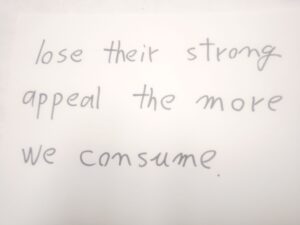 lose their strong
appeal the more
we consume.